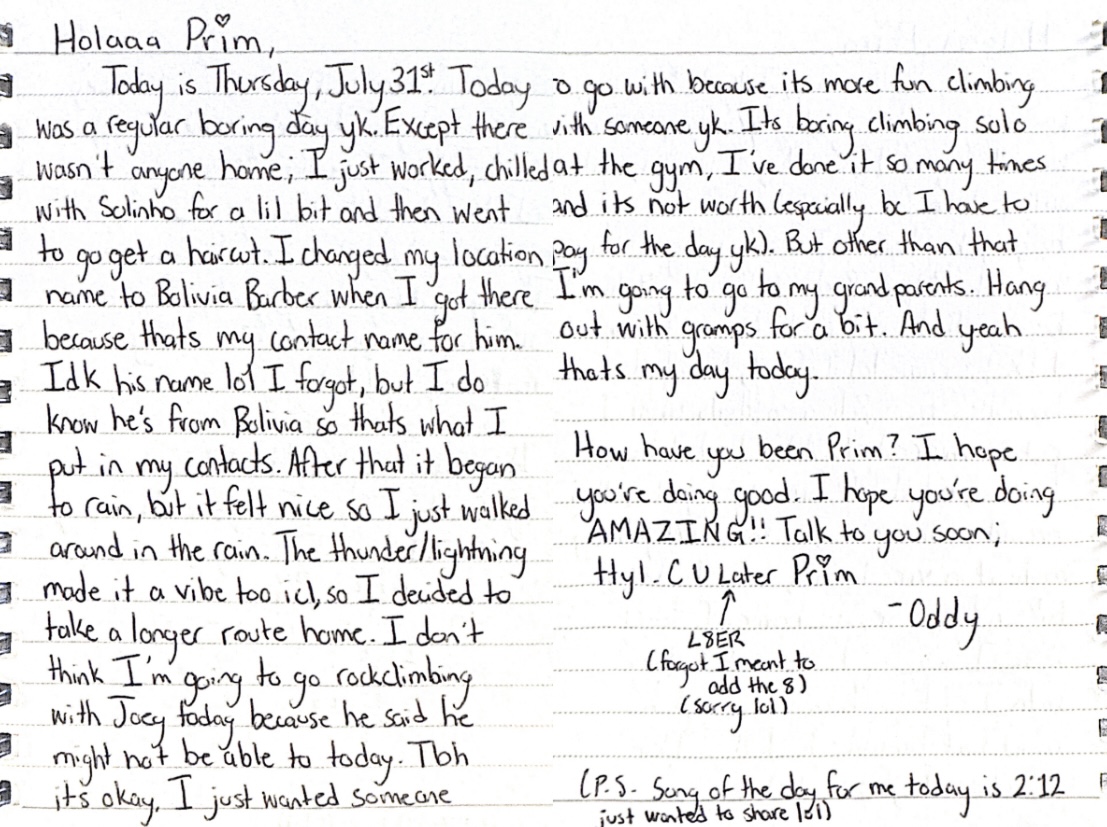 Holaaa Prim,
Today is Thursday, July 31st. Today
was a regular boring day yk. Except there
wasn't anyone home; I just worked, chilled
with Solinho for a lil bit and then went
to go get a haircut. I changed my location
name to Bolivia Barber when I got there
because thats my contact name for him.
Idk his name lol I forgot, but I do
know he's from Bolivia so thats what I
put in my contacts. After that it began
to rain, but it felt nice so I just walked
around in the rain. The thunder/lightning
made it a vibe too icl, so I decided to
take a longer route home. I don't
think I'm going to go rockclimbing
with Joey today because he said he
might not be able to today. Tbh
it's okay, I just wanted someone
o go with because its more fun climbing
with someone yk. Its boring climbing solo
at the gym, I've done it so many times
and its not worth (especially bc I have to
pay for the day yk). But other than that
I'm going to go to my grandparents. Hang
out with gramps for a bit. And yeah
thats my day today.
How have you been Prim? I hope
you're doing good. I hope you're doing
AMAZING!! Talk to you soon;
Hyl. C U Later Prim
-Oddy
L8ER
(forgot I meant to
add the 8)
(sorry lol)
(P.S. Song of the day for me today is 2:12
just wanted to share lol)